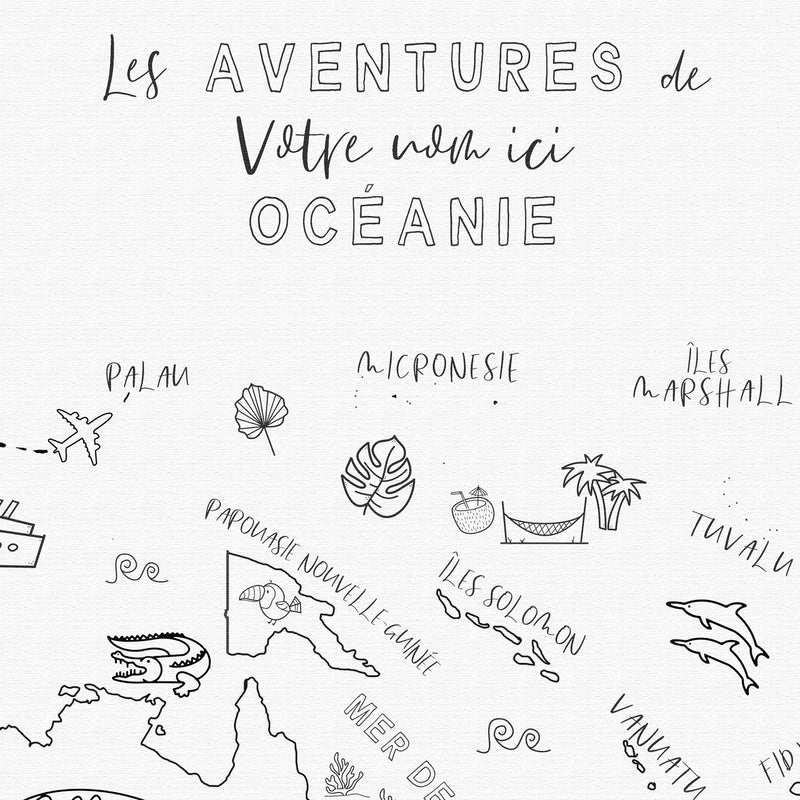 Les AVENTURES de
Votre nom ici
OCÉANIE
PALAU
MICRONESIE
ÎLES
MARSHALL
TUVALU
PAPOUASIE NOUVELLE-GUINÉE
ÎLES SOLOMON
MER DE
VANUATU